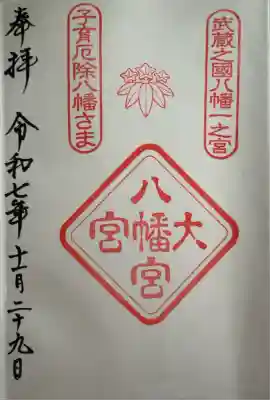 武蔵之國八幡一之宮
子育厄除八幡さま
大八幡宮宮
奉拝 令和七年十一月二十九日